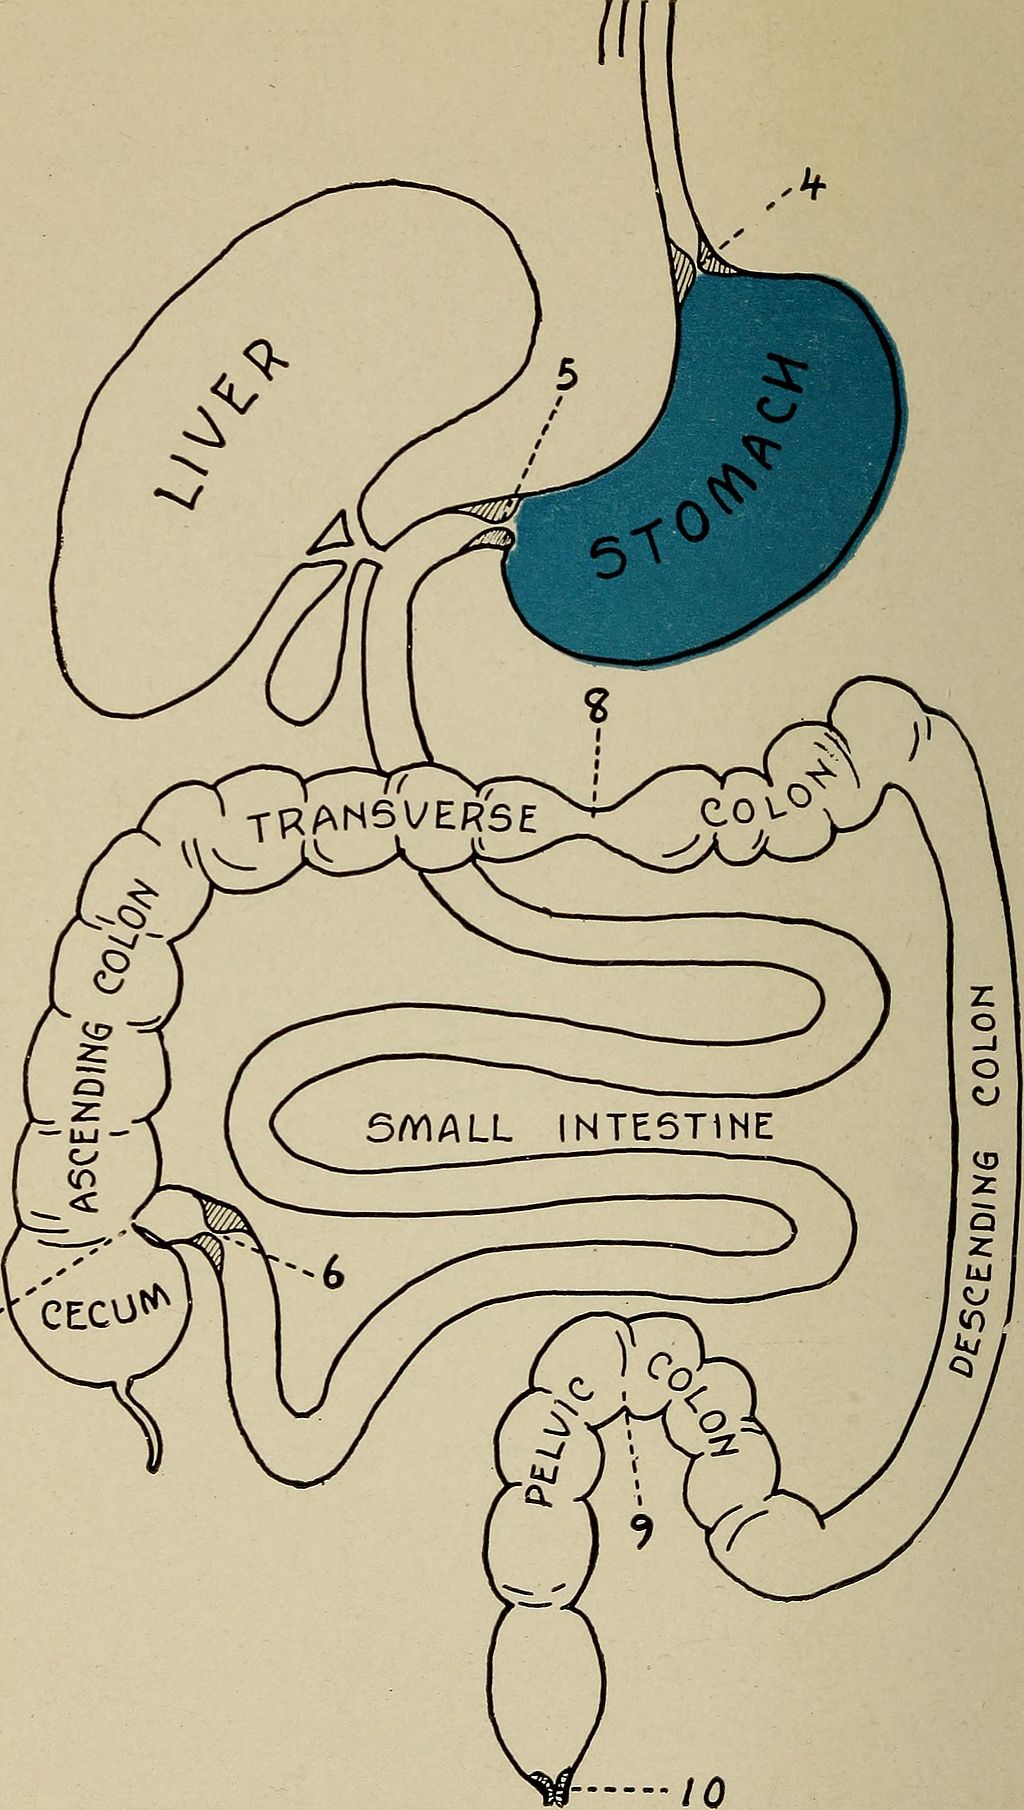 4
LIVER
5
STOMACH
8
TRANSVERSE COLON
ASCENDING COLON
SMALL INTESTINE
DESCENDING COLON
6
CECUM
PELVIC COLON
9
10